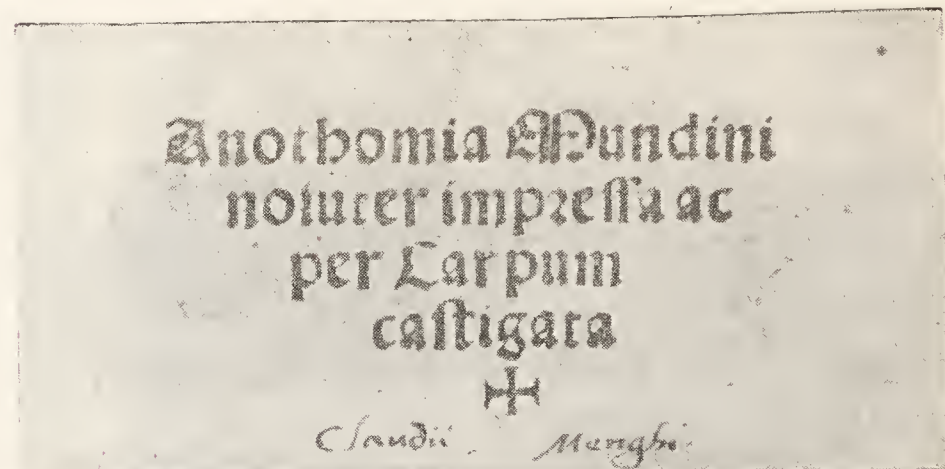 Anothomia Mundini
noiuter impressa ac
per Carpum
castigata
Claudii Menghi